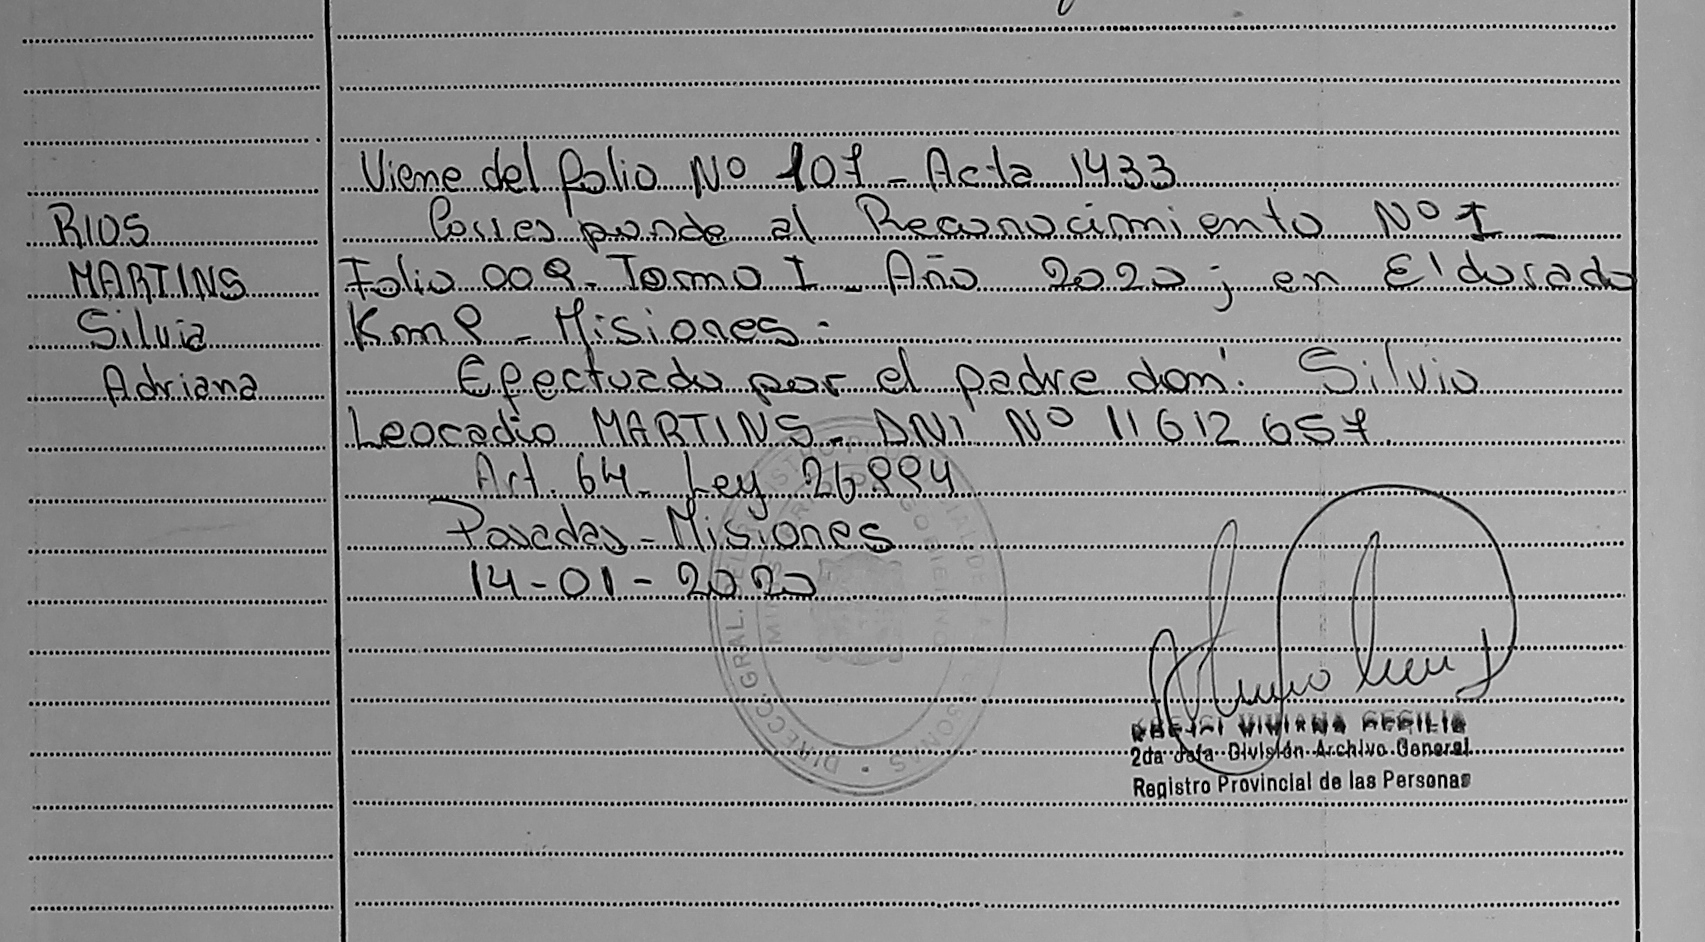 Viene del folio Nº 107 - Acta 1433
RIOS
Corresponde al Reconocimiento Nº I -
MARTINS
Folio 009 - Tomo I - Año 2020 ; en Eldorado
Silvia
Km 9 - Misiones.-
Adriana
Efectuado por el padre don: Silvio
Leocadio MARTINS - DNI Nº 11612657
Art. 64 - Ley 26994
Posadas - Misiones
14-01-2020
VIVIANA CECILIA
2da Jefa División Archivo General
Registro Provincial de las Personas
DIRECC. GRAL.